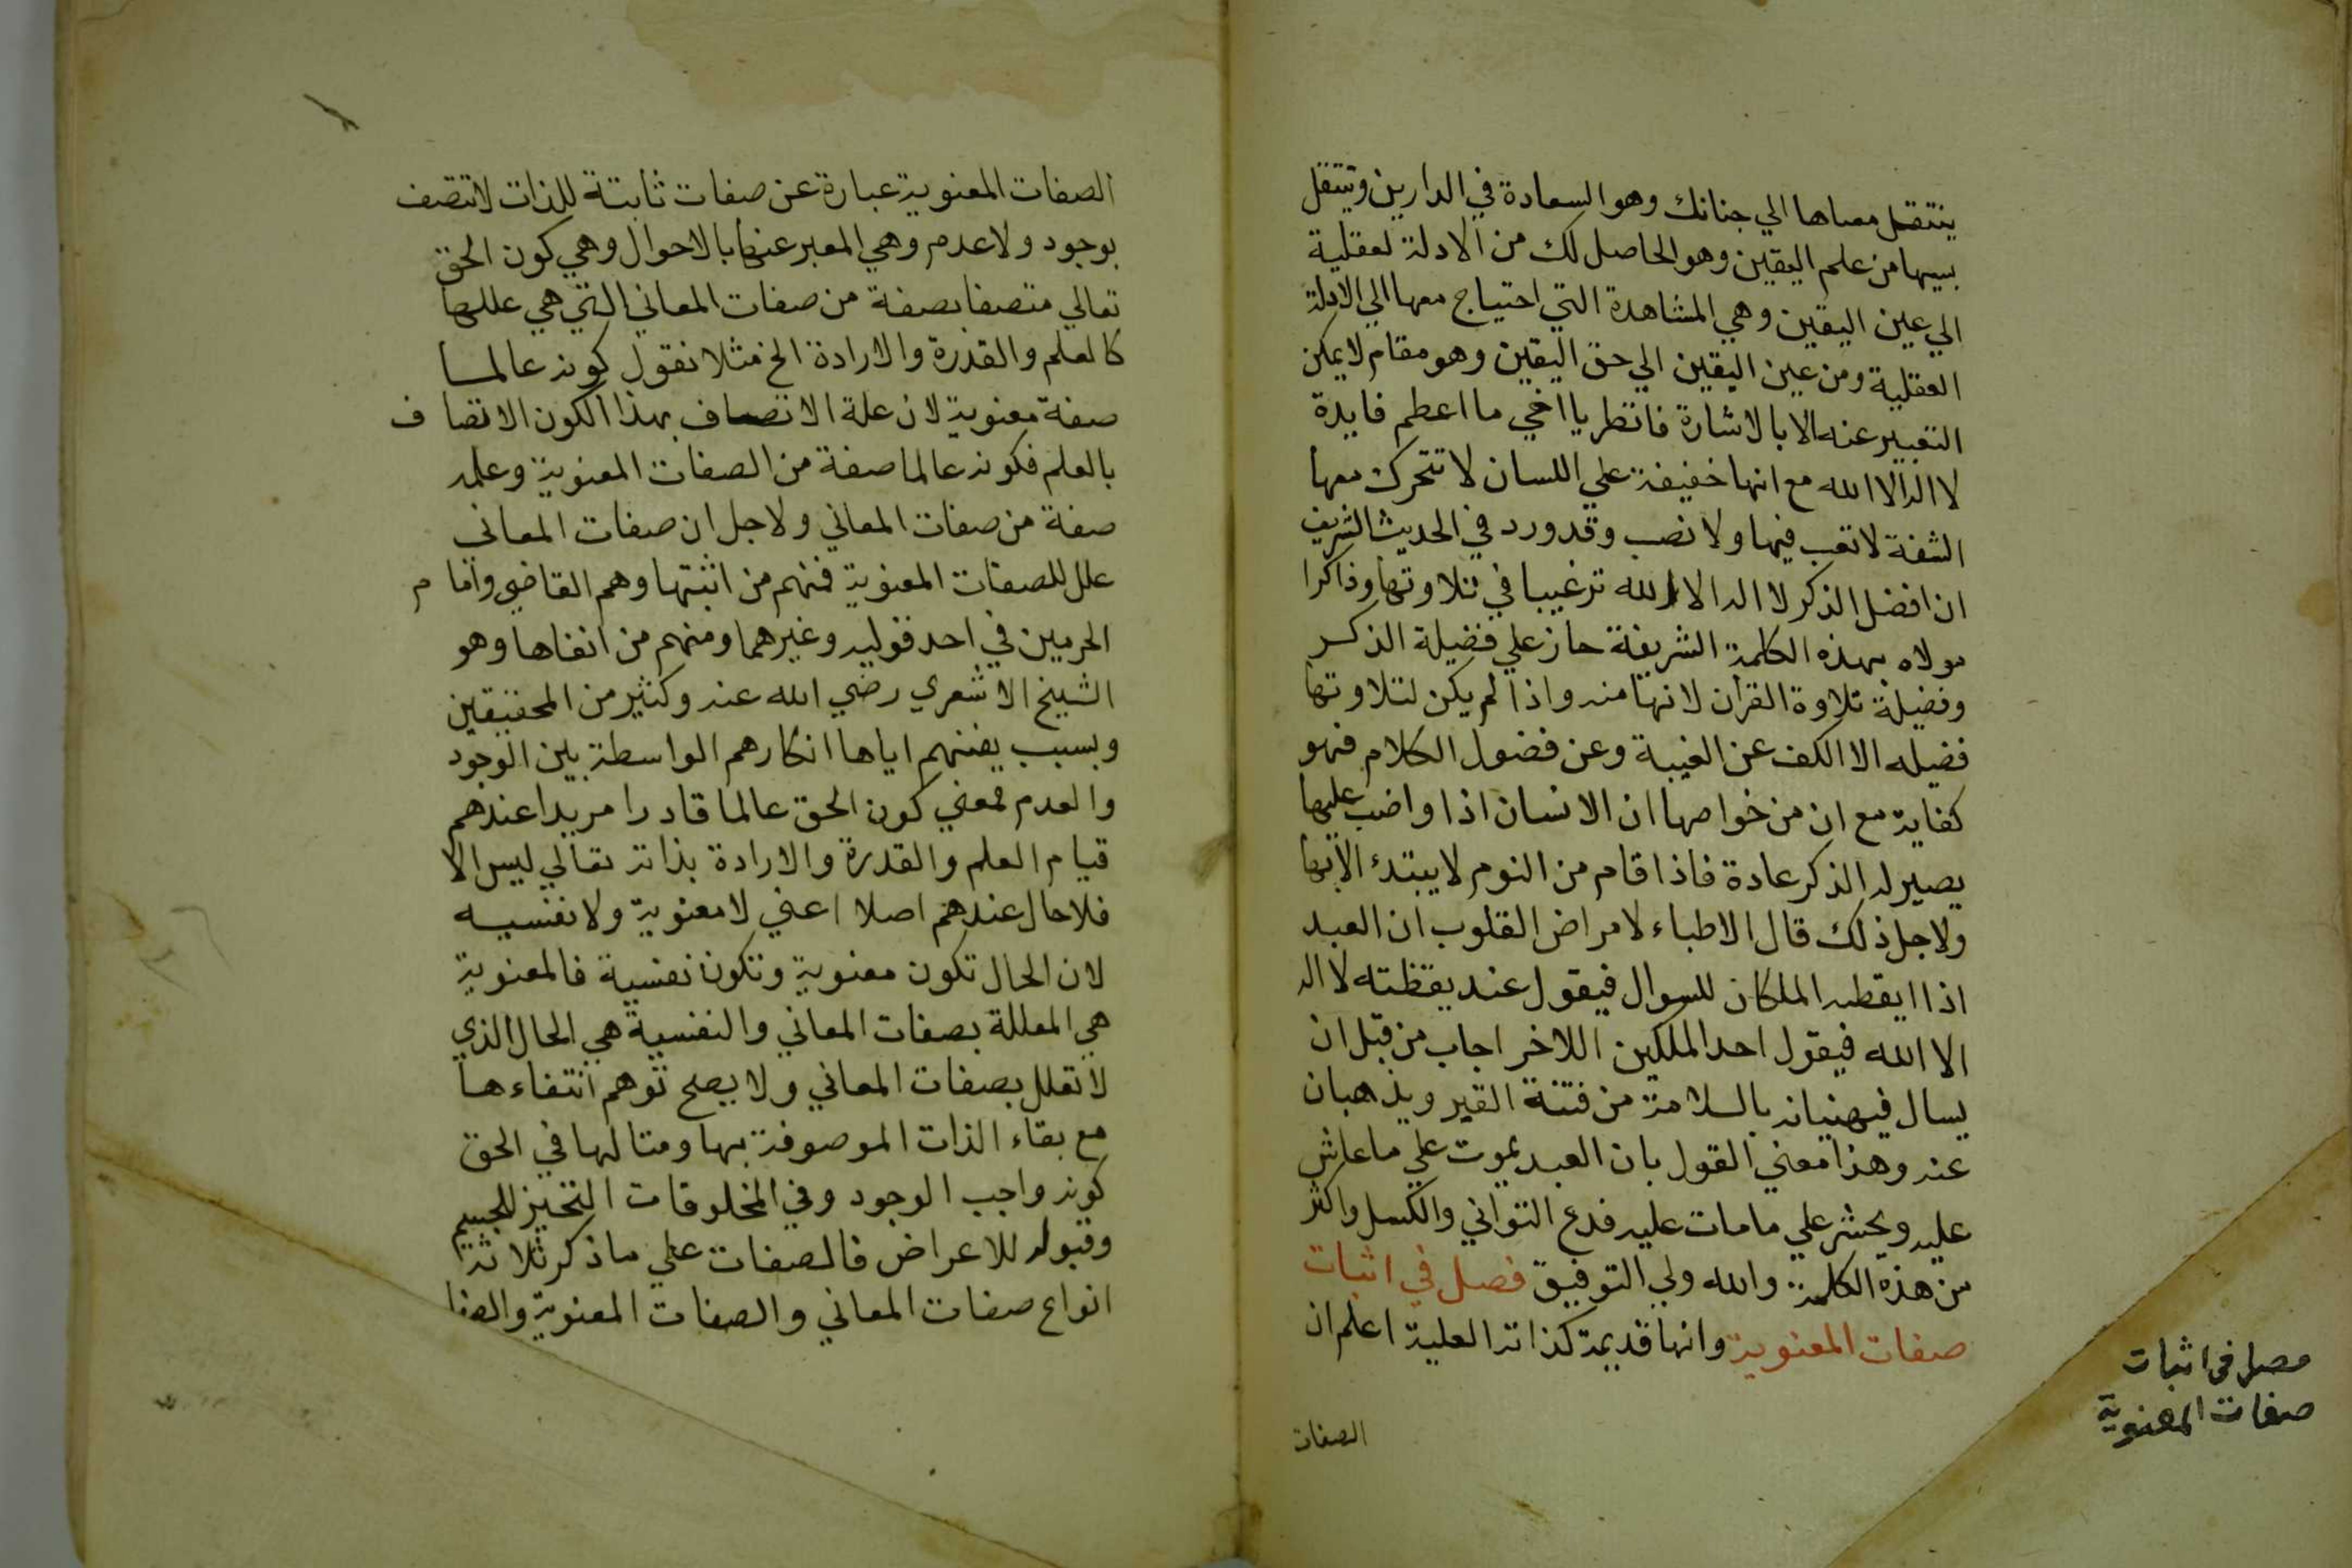 ينتقل معناها الي جنانك وهو السعادة في الدارين وينتقل
بسببها من علم اليقين وهو الحاصل لك من الادلة لعقلية
الي عين اليقين وهي المشاهدة التي احتياج معها الي الادلة
العقلية ومن عين اليقين الي حق اليقين وهو مقام لا يمكن
التعبير عنه الا بالاشارة فانظر يا اخي ما اعظم فايدة
لا اله الا الله مع انها خفيفة علي اللسان لا تتحرك معها
الشفة لا تعب فيها ولا نصب وقد ورد في الحديث الشريف
ان افضل الذكر لا اله الا الله ترغيبا في تلاوتها وذاكرا
مولاه بهذه الكلمة الشريفة حاز علي فضيلة الذكر
وفضيلة تلاوة القرأن لانها منه واذا لم يكن لتلاوتها
فضيله الا الكف عن الغيبة وعن فضول الكلام فهو
كفاية مع ان من خواصها ان الانسان اذا واضب عليها
يصير له الذكر عادة فاذا قام من النوم لا يبتدئ الا بها
ولاجل ذلك قال الاطباء لامراض القلوب ان العبد
اذا ايقظه الملكان للسوال فيقول عند يقظته لا اله
الا الله فيقول احد الملكين اللاخر اجاب من قبل ان
يسال فيهنيانه بالسلامة من فتنة القبر ويذهبان
عنه وهذا معني القول بان العبد يموت علي ما عاش
عليه ويحشر علي ما مات عليه فدع التواني والكسل واكثر
من هذه الكلمة والله ولي التوفيق فصل في اثبات
صفات المعنوية وانها قديمة كذاته العلية اعلم ان
الصفات
فصل في اثبات
صفات المعنوية
الصفات المعنوية عبارة عن صفات ثابتة للذات لا تتصف
بوجود ولا عدم وهي المعبر عنها بالاحوال وهي كون الحق
تعالي متصفا بصفة من صفات المعاني التي هي عللها
كالعلم والقدرة والارادة الخ مثلا نقول كونه عالما
صفة معنوية لان علة الاتصاف بهذا الكون الاتصاف
بالعلم فكونه عالما صفة من الصفات المعنوية وعلمه
صفة من صفات المعاني ولاجل ان صفات المعاني
علل للصفات المعنوية فمنهم من اثبتها وهم القاضي وامام
الحرمين في احد قوليه وغيرهما ومنهم من انفاها وهو
الشيخ الاشعري رضي الله عنه وكثير من المحققين
وبسبب يفنهم اياها انكارهم الواسطة بين الوجود
والعدم فمعني كون الحق عالما قادرا مريدا عندهم
قيام العلم والقدرة والارادة بذاته تعالي ليس الا
فلا حال عندهم اصلا اعني لا معنوية ولا نفسيه
لان الحال تكون معنوية وتكون نفسية فالمعنوية
هي المعللة بصفات المعاني والنفسية هي الحال الذي
لا تعلل بصفات المعاني ولا يصح توهم انتفاءها
مع بقاء الذات الموصوفة بها ومثالها في الحق
كونه واجب الوجود وفي المخلوقات التحيز للجسم
وقبوله للاعراض فالصفات علي ما ذكر ثلاثة
انواع صفات المعاني والصفات المعنوية